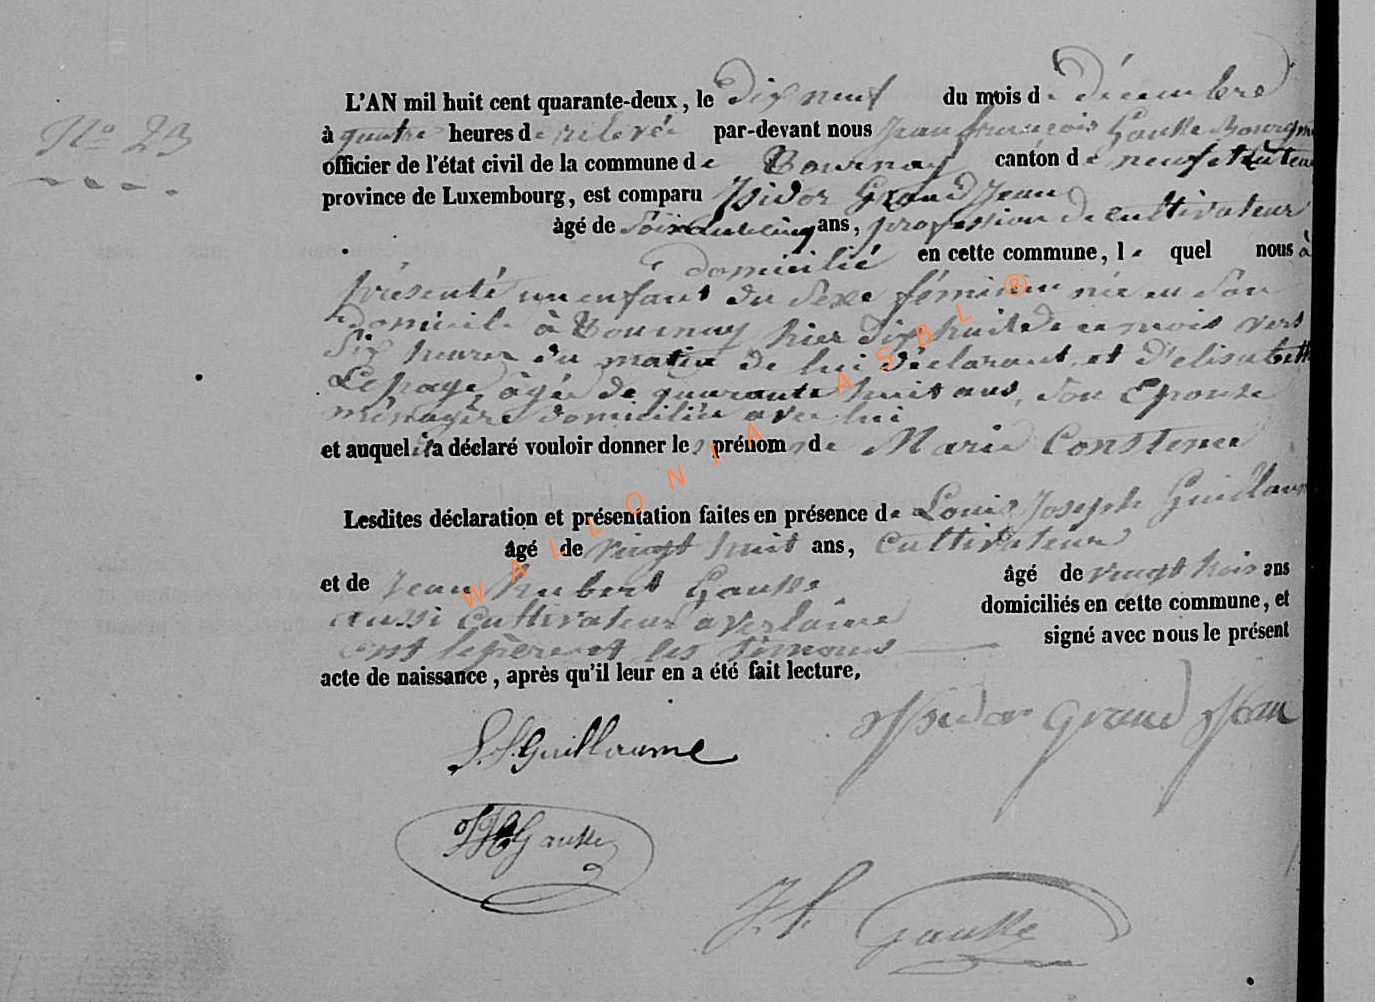 N° 23
L'AN mil huit cent quarante-deux, le dix neuf du mois de décembre
à quatre heures de relevée par-devant nous Jean françois Gausse Bourgm
officier de l'état civil de la commune de Tournay canton de neufchateau
province de Luxembourg, est comparu Isidor Grand Jean
âgé de ans, profession de cultivateur
domicilié en cette commune, le quel nous à
présenté un enfant du Sexe féminin née en Son
domicile à Tournay hier dix huit de ce mois vers
Six heures du matin de lui déclarant, et d'elisabeth
Lepage, âgée de quarante huit ans, Son Epouse
ménagère domiciliée avec lui
et auquel il a déclaré vouloir donner les prénoms de Marie Constence
Lesdites déclaration et présentation faites en présence de Louis Joseph Guillaume
âgé de vingt huit ans, cultivateur
et de Jean hubert Gausse âgé de vingt trois ans
aussi cultivateur a verlaine domiciliés en cette commune, et
ont le père et les témoins signé avec nous le présent
acte de naissance, après qu'il leur en a été fait lecture.
L. J. Guillaume
Isidor Grand Jean
J H Gausse
J. f. Gausse
WALLONIA ASBL ®